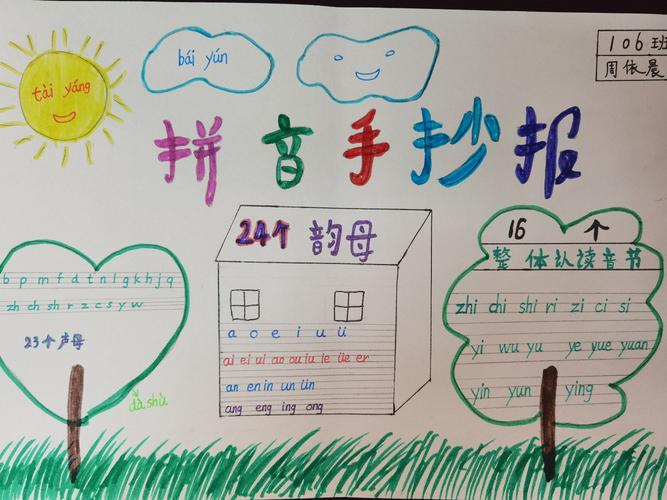 106班
周依晨
tài yáng
bái yún
拼音手抄报
24个 韵母
16 个
整体认读音节
b p m f d t n l g k h j q
zh ch sh r z c s y w
23个声母
dà shù
a o e i u ü
ai ei ui ao ou iu ie üe er
an en in un ün
ang eng ing ong
zhi chi shi ri zi ci si
yi wu yu ye yue yuan
yin yun ying